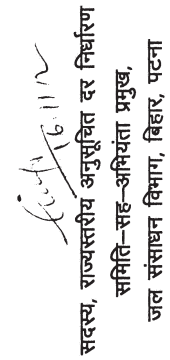 16.11.12
सदस्य, राज्यस्तरीय अनुसूचित दर निर्धारण
समिति–सह–अभियंता प्रमुख,
जल संसाधन विभाग, बिहार, पटना